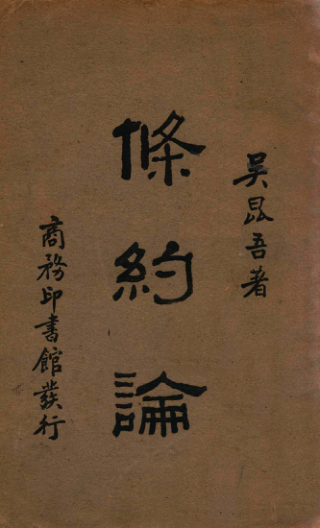 吴昆吾著
條約論
商務印書館發行